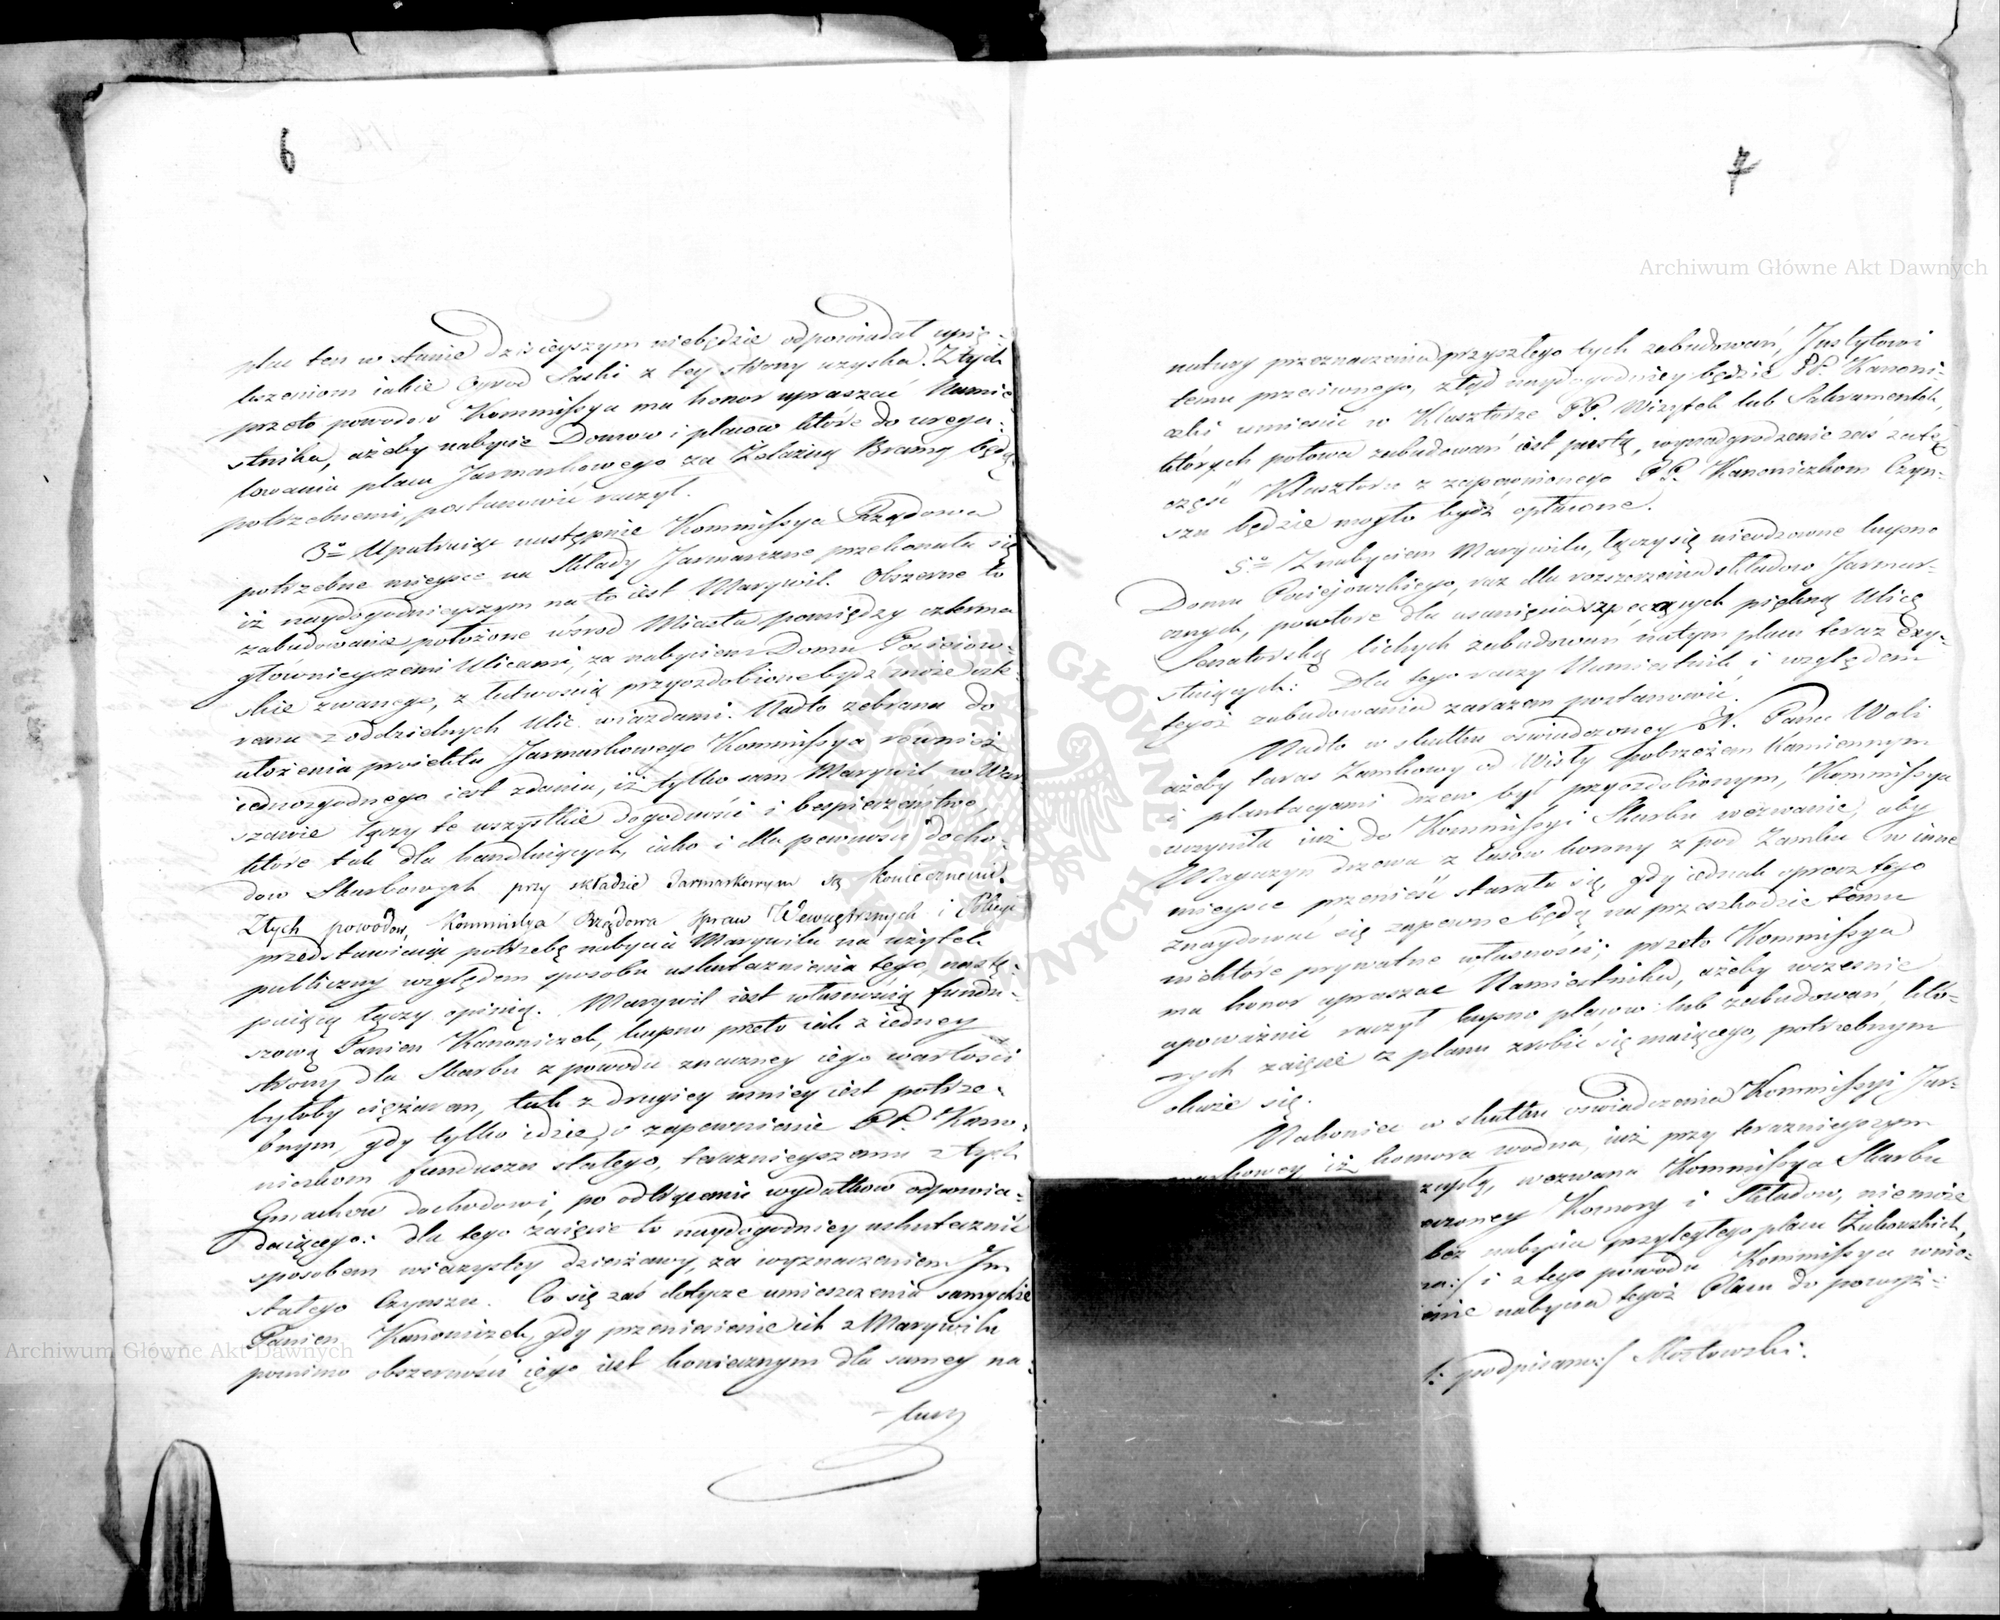 6
plac ten w stanie dzisieyszym niebędzie odpowiadał upię-
kszeniom iakie Ogrod Saski z tey strony uzyska. Z tych
przeto powodow Kommissya ma honor upraszać Namie-
stnika, ażeby nabycie Domow i placow które do uregu-
lowania placu Jarmarkowego za Żelazną Bramą będą
potrzebnemi, postanowić raczył.
3o Upatruiąc następnie Kommissya Rządowa
potrzebne mieysce na Składy Jarmarczne przekonała się
iż naydogodnieyszym na to iest Marywil. Obszerne to
zabudowanie położone wśrod Miasta pomiędzy czterma
głównieyszemi Ulicami, za nabyciem Domu Pociejow-
skie zwanego, z łatwością przyozdobione bydź może czte-
rema z oddzielnych Ulic wiazdami. Nadto zebrana do
ułożenia proiektu Jarmarkowego Kommissya również
iednozgodnego iest zdania, iż tylko sam Marywil w War-
szawie łączy te wszystkie dogodności i bespieczeństwo,
które tak dla handluiących, iako i dla pewności docho-
dow Skarbowych przy składzie Jarmarkowym są koniecznemi.
Z tych powodow, Kommissya Rządowa Spraw Wewnętrznych i Policyi
przedstawiaiąc potrzebę nabycia Marywilu na użytek
publiczny względem sposobu uskutecznienia tego, nastę-
puiącą łączy opinią. Marywil iest własnością fundu-
szową Panien Kanoniczek, kupno przeto iak z iedney
strony dla Skarbu z powodu znaczney iego wartości
byłoby ciężarem, tak z drugiey mniey iest potrze-
bnym, gdy tylko idzie o zapewnienie PP. Kano-
niczkom funduszu stałego, teraznieyszemu z tych
Gmachow dochodowi, po odtrąceniu wydatkow odpowia-
daiącego: dla tego zaięcie to naydogodniey uskutecznić
sposobem wieczystey dzierżawy, za wyznaczeniem
stałego Czynszu. Co się zaś dotycze umieszczenia samychże
Panien Kanoniczek, gdy przeniesienie ich z Marywilu
pomimo obszerności iego iest koniecznym dla samey na-
tury
7
natury przeznaczenia przyszłego tych zabudowań, Instytutowi
temu przeciwnego, ztąd naydogodniey będzie PP. Kanoni-
czki umieścić w Klasztorze PP. Wizytek lub Sakramentek,
których połowa zabudowań iest pustą, wynadgrodzenie zaś za tę
część Klasztoru z zapewnionego PP. Kanoniczkom Czyn-
szu będzie mogło bydź opłacone.
5o Z nabyciem Marywilu, łączy się nieodzowne kupno
Domu Pociejowskiego, raz dla rozszerzenia składow Jarmar-
cznych, powtore dla usunięcia szpecących piękną Ulicę
Senatorską lichych zabudowań na tym placu teraz exy-
stuiących: Dla tego raczy Namiestnik i względem
tegoż zabudowania zarazem postanowić.
Nadto w skutku oświadczoney N. Pana Woli
ażeby taras Zamkowy od Wisły pobrzeżem kamiennym
i plantacyami drzew był przyozdobionym, Kommissya
uczyniła iuż do Kommissyi Skarbu wezwanie, aby
Magazyn drzewa z lasow korony z pod Zamku w inne
mieysce przenieść starała się, gdy iednak oprocz tego
znaydować się zapewne będą na przeszkodzie temu
niektóre prywatne własności; przeto Kommissya
ma honor upraszać Namiestnika, ażeby wcześnie
upoważnić raczył kupno placow lub zabudowań, któ-
rych zaięcie z planu zrobić się maiącego, potrzebnym
okaże się.
Nakoniec w skutku oświadczenia Kommissyi Jar-
markowey iż komora wodna, iuż przy teraznieyszym
wezwana Kommissya Skarbu
Komory i Składow, niemoże
bez nabycia przyległego placu Żubowskich,
i z tego powodu Kommissya wnio-
nabycia tegoż Placu do powyż-
podpisano:/ Mostowski.
Archiwum Główne Akt Dawnych
Archiwum Główne Akt Dawnych